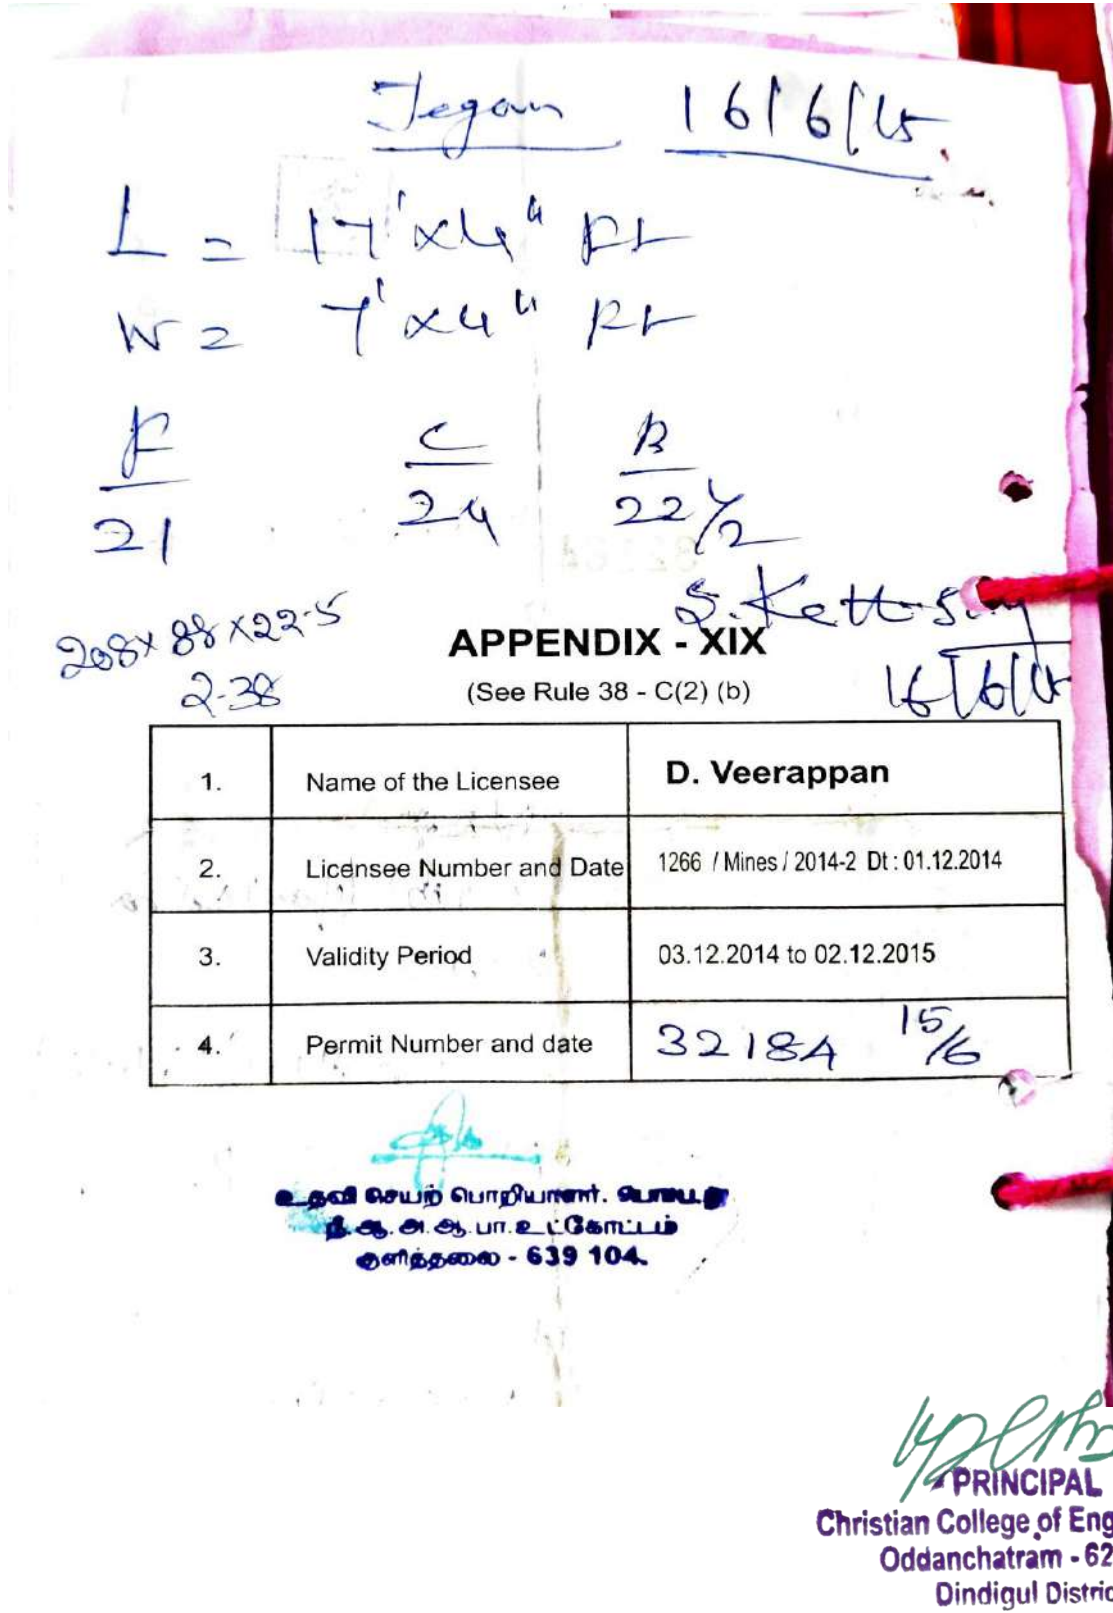 Jegan 16/6/15
L = 17' x 4" Ft
W = 7' x 4" Ft
F C B
21 24 22 1/2
208 x 88 x 22.5
2.38
S.
16/6/15
APPENDIX - XIX
(See Rule 38 - C(2) (b)
1. Name of the Licensee D. Veerappan
2. Licensee Number and Date 1266 / Mines / 2014-2 Dt : 01.12.2014
3. Validity Period 03.12.2014 to 02.12.2015
4. Permit Number and date 32184 15/6
உதவி செயற் பொறியாளர்.
நீ.ஆ.அ.ஆ.பா.உட்கோட்டம்
குளித்தலை - 639 104.
PRINCIPAL
Christian College of Eng
Oddanchatram - 62
Dindigul Distric